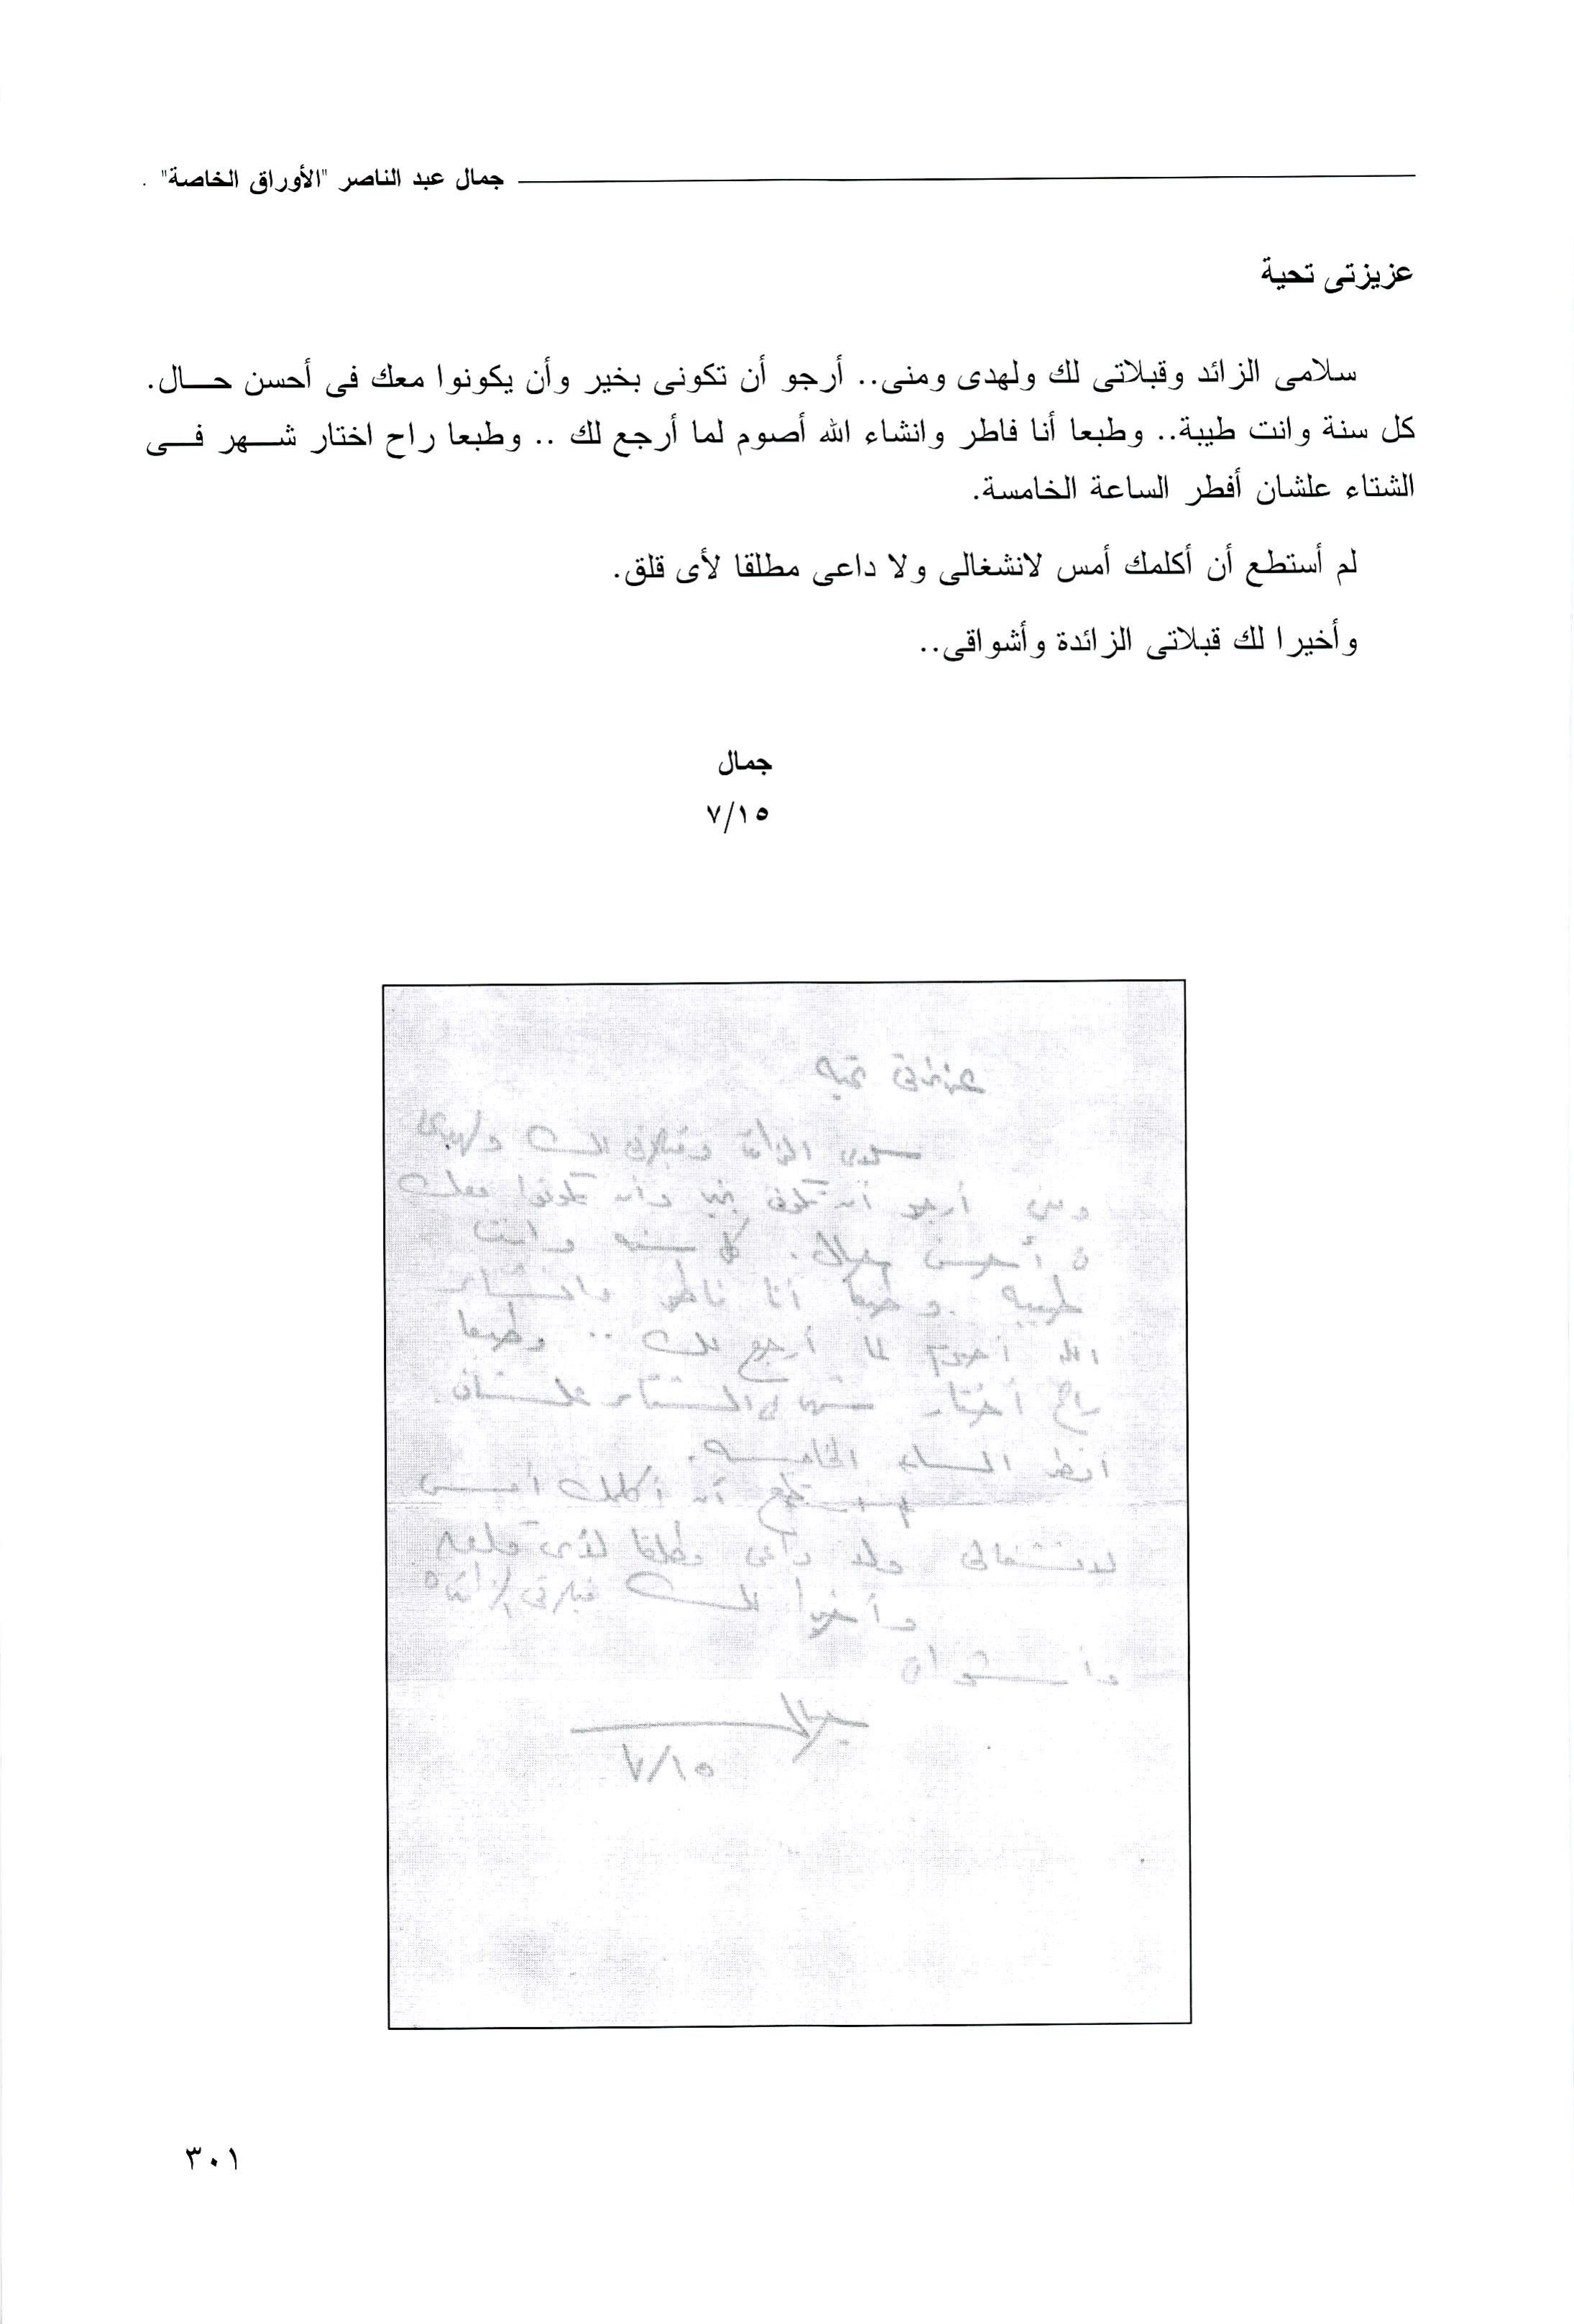 جمال عبد الناصر "الأوراق الخاصة" .
عزيزتى تحية
سلامى الزائد وقبلاتى لك ولهدى ومنى.. أرجو أن تكونى بخير وأن يكونوا معك فى أحسن حـــال.
كل سنة وانت طيبة.. وطبعا أنا فاطر وانشاء الله أصوم لما أرجع لك .. وطبعا راح اختار شـــهر فـــى
الشتاء علشان أفطر الساعة الخامسة.
لم أستطع أن أكلمك أمس لانشغالى ولا داعى مطلقا لأى قلق.
وأخيرا لك قبلاتى الزائدة وأشواقى..
جمال
٧/١٥
عزيزتى تحيه
سلامى الزائد وقبلاتى لك ولهدى
ومنى أرجو أن تكونى بخير وأن يكونوا معك
فى أحسن حال. كل سنه وانت
طيبه . وطبعا أنا فاطر وانشاء
الله أصوم لما أرجع لك .. وطبعا
راح أختار شهر فى الشتاء علشان
أفطر الساعه الخامسه.
لم استطع أن أكلمك أمس
لانشغالى ولا داعى مطلقا لأى قلق.
وأخيرا لك قبلاتى الزائده
وأشواقى
جمال
٧/١٥
٣٠١